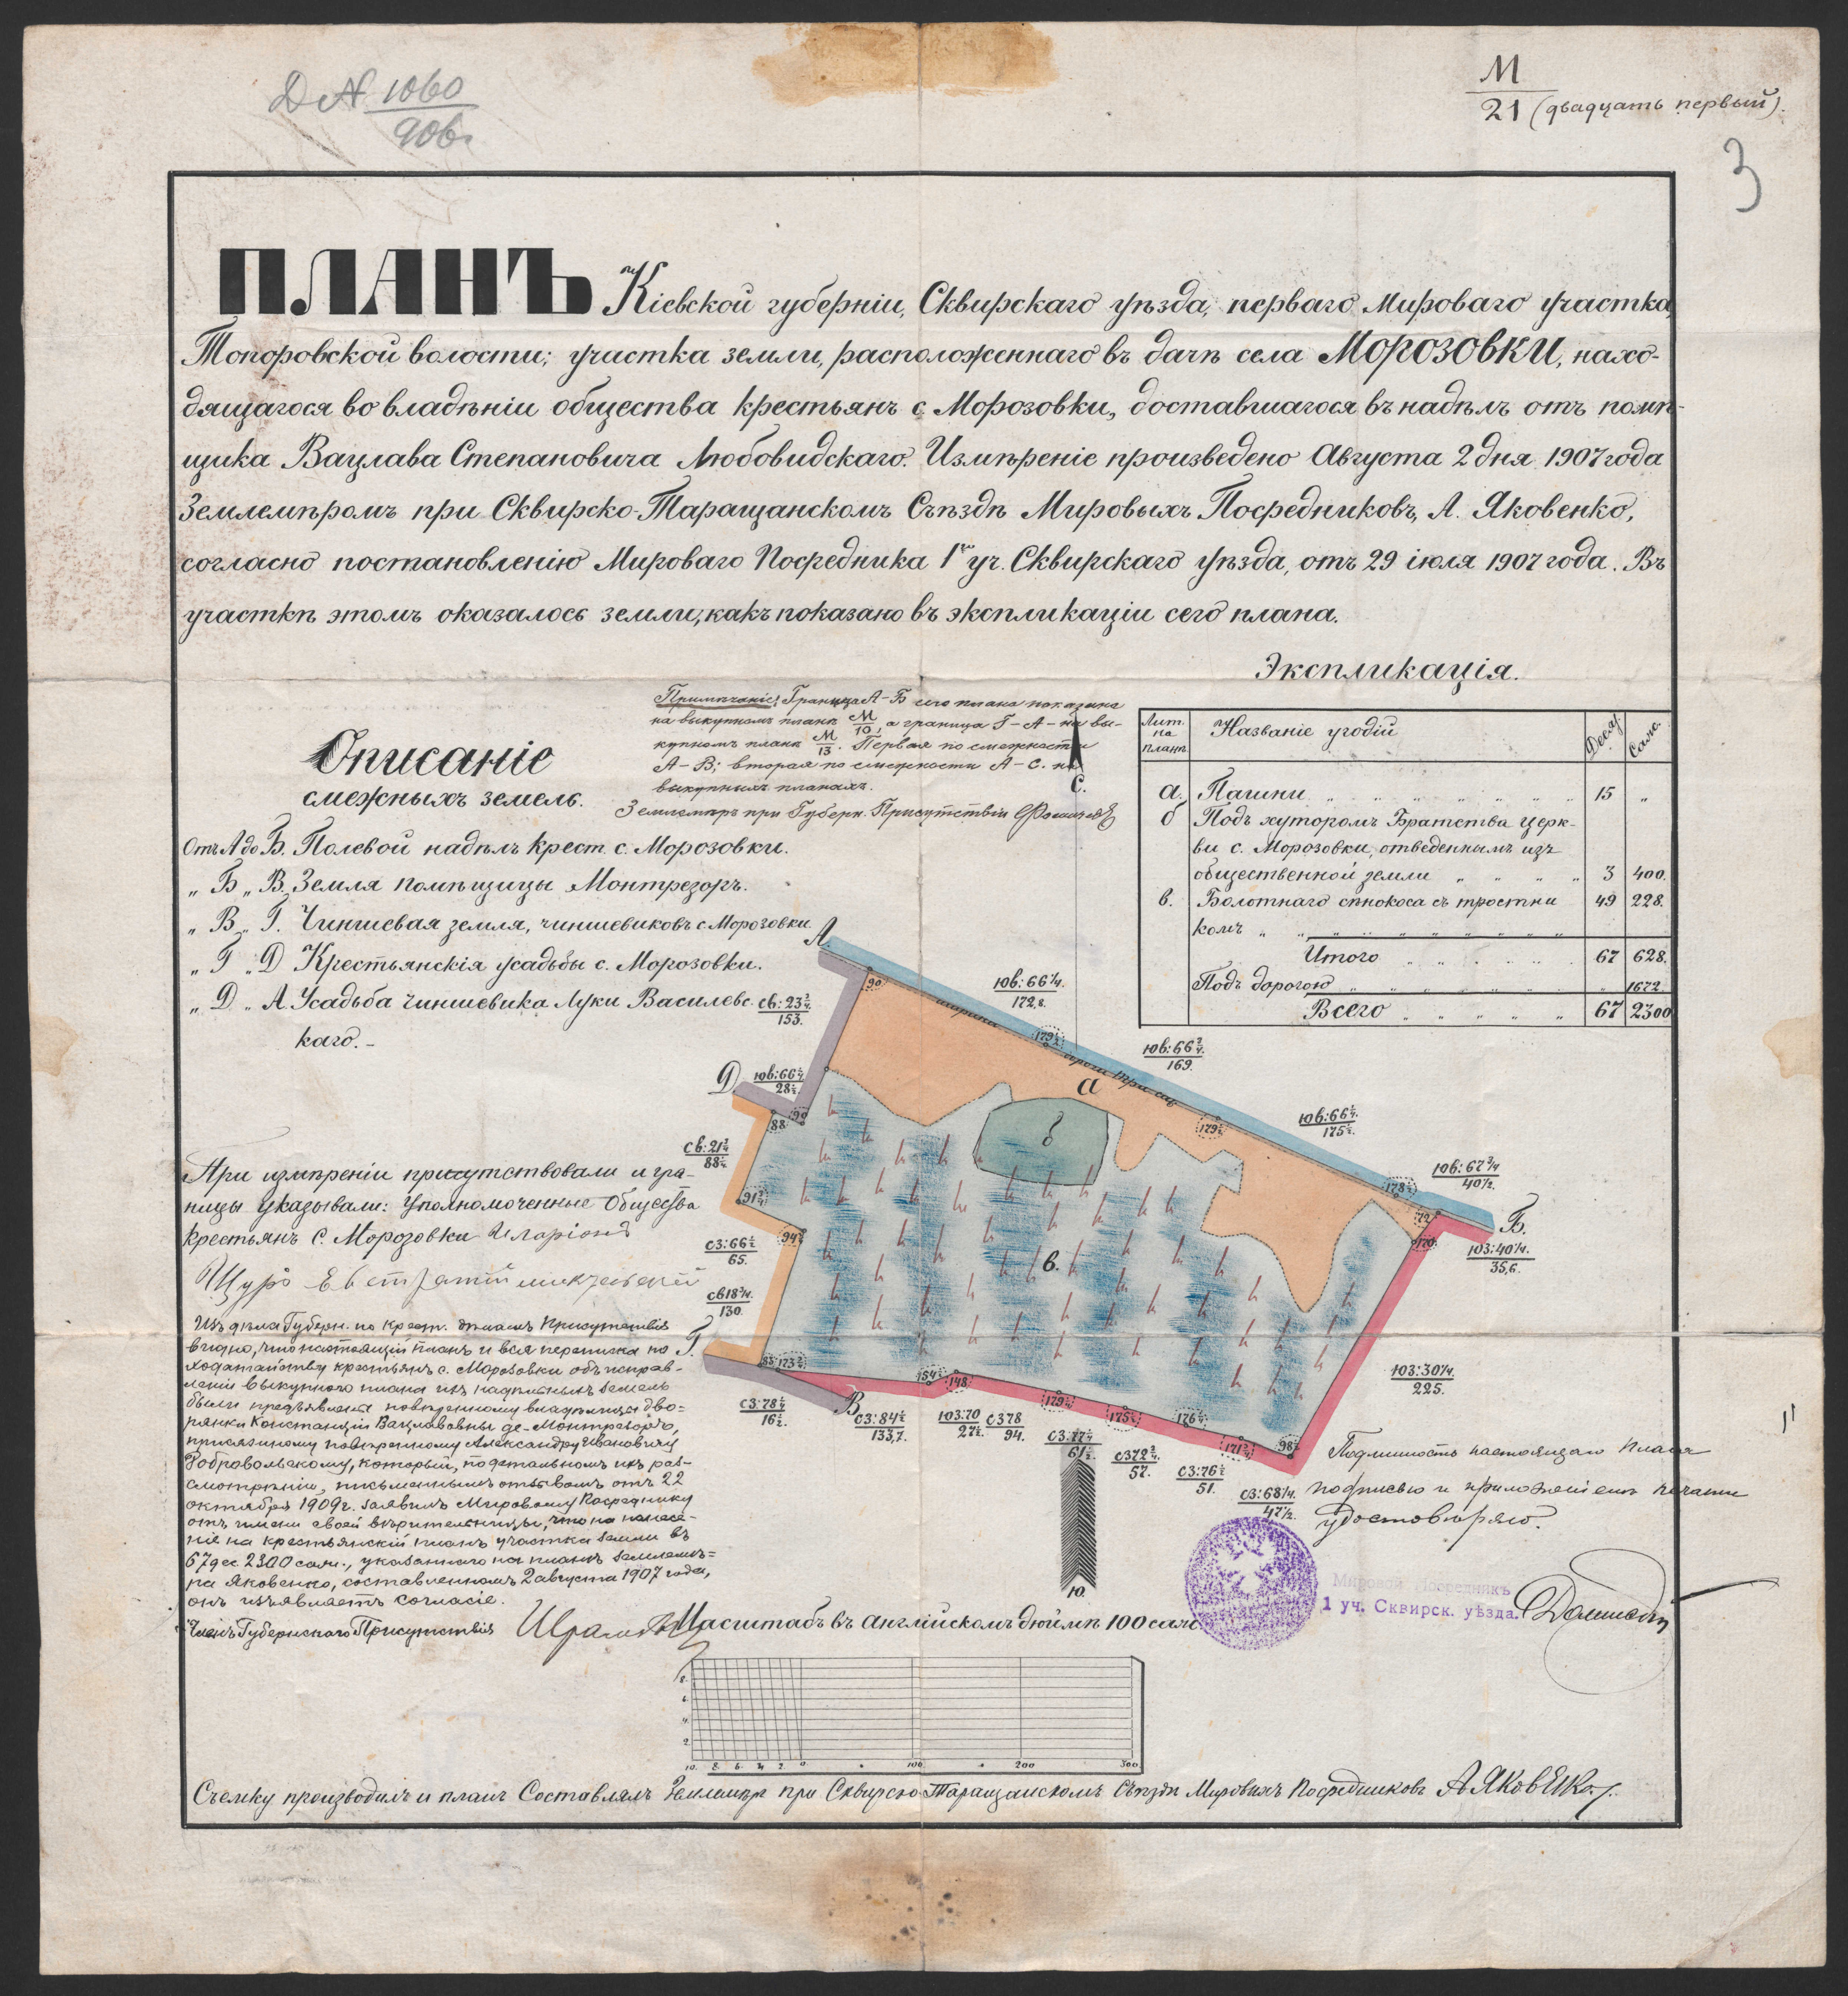 Д № 1060
906 г.
М
21 (двадцать первый).
3
ПЛАНЪ Кіевской губерніи, Сквирскаго уѣзда, перваго Мироваго участка,
Топоровской волости; участка земли, расположеннаго въ дачѣ села МОРОЗОВКИ, нахо-
дящагося во владѣніи общества крестьянъ с. Морозовки, доставшагося въ надѣлъ отъ помѣ-
щика Вацлава Степановича Любовидскаго. Измѣреніе произведено Августа 2 дня 1907 года
Землемѣромъ при Сквирско-Таращанскомъ Съѣздѣ Мировыхъ Посредниковъ, А. Яковенко,
согласно постановленію Мироваго Посредника 1го уч. Сквирскаго уѣзда, отъ 29 іюля 1907 года. Въ
участкѣ этомъ оказалось земли, какъ показано въ экспликаціи сего плана.
Экспликація.
Лит. на планѣ Названіе угодій Десят. Саж.
а. Пашни 15 „
б Подъ хуторомъ Братства Церк-
ви с. Морозовки, отведеннымъ изъ
общественной земли 3 400.
в. Болотнаго сѣнокоса съ тростни
комъ 49 228.
Итого 67 628.
Подъ дорогою „ 1672.
Всего 67 2300
Примѣчаніе: Граница А–Б сего плана показана
на выкупномъ планѣ М/10, а граница Г–А – на вы-
купномъ планѣ М/13. Первая по смежности
А–В; вторая по смежности А–С. на
выкупныхъ планахъ.
Землемѣръ при Губерн. Присутствіи
Описаніе
смежныхъ земель.
Отъ А до Б. Полевой надѣлъ крест. с. Морозовки.
„ Б „ В. Земля помѣщицы Монтрезоръ.
„ В „ Г. Чиншевая земля, чиншевиковъ с. Морозовки.
„ Г „ Д Крестьянскія усадьбы с. Морозовки.
„ Д „ А. Усадьба чиншевика Луки Василевс
каго.–
С.
А.
90
СВ: 23¾
153.
ЮВ: 66¼.
172,8.
179½
ширина дороги три саж
ЮВ: 66¾.
169.
а
Д
ЮВ: 66¼
28½
90
88
б
179½
ЮВ: 66½.
175½.
СВ: 21¾
88½
ЮВ: 67¾
40½.
178½
91¾
72
Б.
94½
170
СЗ: 66½
65.
ЮЗ: 40¼.
35,6.
в.
СВ 18¾.
130.
Г.
85
173¾
154½
148
ЮЗ: 30¼
225.
СЗ: 78½
16½.
В
СЗ: 84½
133,7.
ЮЗ: 70
27½.
СЗ 78
94.
179½
175½
176½
171¾
98½
СЗ: 77½
61½.
СЗ 72¾
57.
СЗ: 76½
51.
СЗ: 68¼.
47½.
Ю.
При измѣреніи присутствовали и гра-
ницы указывали: Уполномоченные Общества
крестьянъ с. Морозовки Иларіонъ
Щуръ
Изъ дѣла Губерн. по крест. дѣламъ Присутствія
видно, что настоящій планъ и вся переписка по
ходатайству крестьянъ с. Морозовки объ исправ-
леніи выкупного плана ихъ надѣльныхъ земель
были предъявлены повѣренному владѣлицы дво-
рянки Констанціи Вацлавовны де-Монтрезоръ,
присяжному повѣренному Александру Ивановичу
Добровольскому, который, по детальномъ ихъ раз-
смотрѣніи, письменнымъ отзывомъ отъ 22
октября 1909 г. заявилъ Мировому Посреднику
отъ имени своей вѣрительницы, что на нанесе-
ніе на крестьянскій планъ участка земли въ
67 дес 2300 саж., указаннаго на планѣ землемѣ-
ра Яковенко, составленномъ 2 августа 1907 года,
онъ изъявляетъ согласіе.
Членъ Губернскаго Присутствія
Подлинность настоящаго плана
подписью и приложеніемъ печати
удостовѣряю.
Мировой Посредникъ
1 уч. Сквирск. уѣзда.
Масштабъ въ Англійскомъ дюймѣ 100 саж.
8.
6.
4.
2.
10. 8. 6. 4 2. 0 100 200 300
Съемку производилъ и планъ Составлялъ Землемѣръ при Сквирско-Таращанскомъ Съѣздѣ Мировыхъ Посредниковъ А Яковенко.